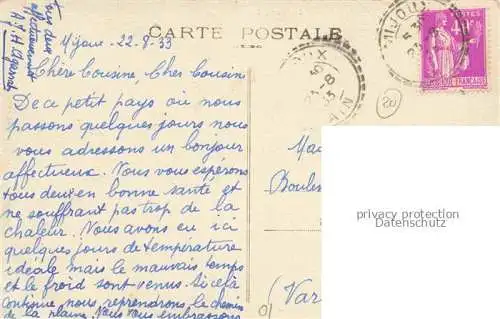 Tous deux
affectueusement
A. J. H.
CARTE POSTALE
Mijoux - 22-8-33
Chère Cousine, Cher Cousin
De ce petit pays où nous
passons quelques jours nous
vous adressons un bonjour
affectueux. Nous vous espérons
tous deux en bonne santé et
ne souffrant pas trop de la
chaleur. Nous avons eu ici
quelques jours de température
idéale mais le mauvais temps
et le froid sont venus. Si cela
continue nous reprendrons le chemin
de la plaine. Nous vous embrassons
POSTES
FRANÇAISE
MIJOUX
AIN
20
Mad
Boulev
(Var
privacy protection
Datenschutz